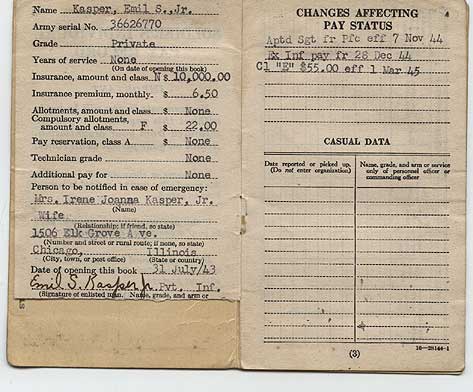 Name Kasper, Emil S., Jr.
Army serial No. 36626770
Grade Private
Years of service None
(On date of opening this book)
Insurance, amount and class N $ 10,000.00
Insurance premium, monthly. $ 6.50
Allotments, amount and class $ None
Compulsory allotments,
amount and class. F $ 22.00
Pay reservation, class A $ None
Technician grade None
Additional pay for None
Person to be notified in case of emergency:
Mrs. Irene Joanna Kasper, Jr.
(Name)
Wife
(Relationship; if friend, so state)
1506 Elk Grove Ave.
(Number and street or rural route; if none, so state)
Chicago, Illinois
(City, town, or post office) (State or country)
Date of opening this book 31 July/43
Emil S. Kasper Jr. Pvt. Inf.
(Signature of enlisted man. Name, grade, and arm or
CHANGES AFFECTING
PAY STATUS
Aptd Sgt fr Pfc eff 7 Nov 44
Ex Inf pay fr 28 Dec 44
Cl "E" $55.00 eff 1 Mar 45
CASUAL DATA
Date reported or picked up.
(Do not enter organization)
Name, grade, and arm or service
only of personnel officer or
commanding officer
(3)
16—28144-1